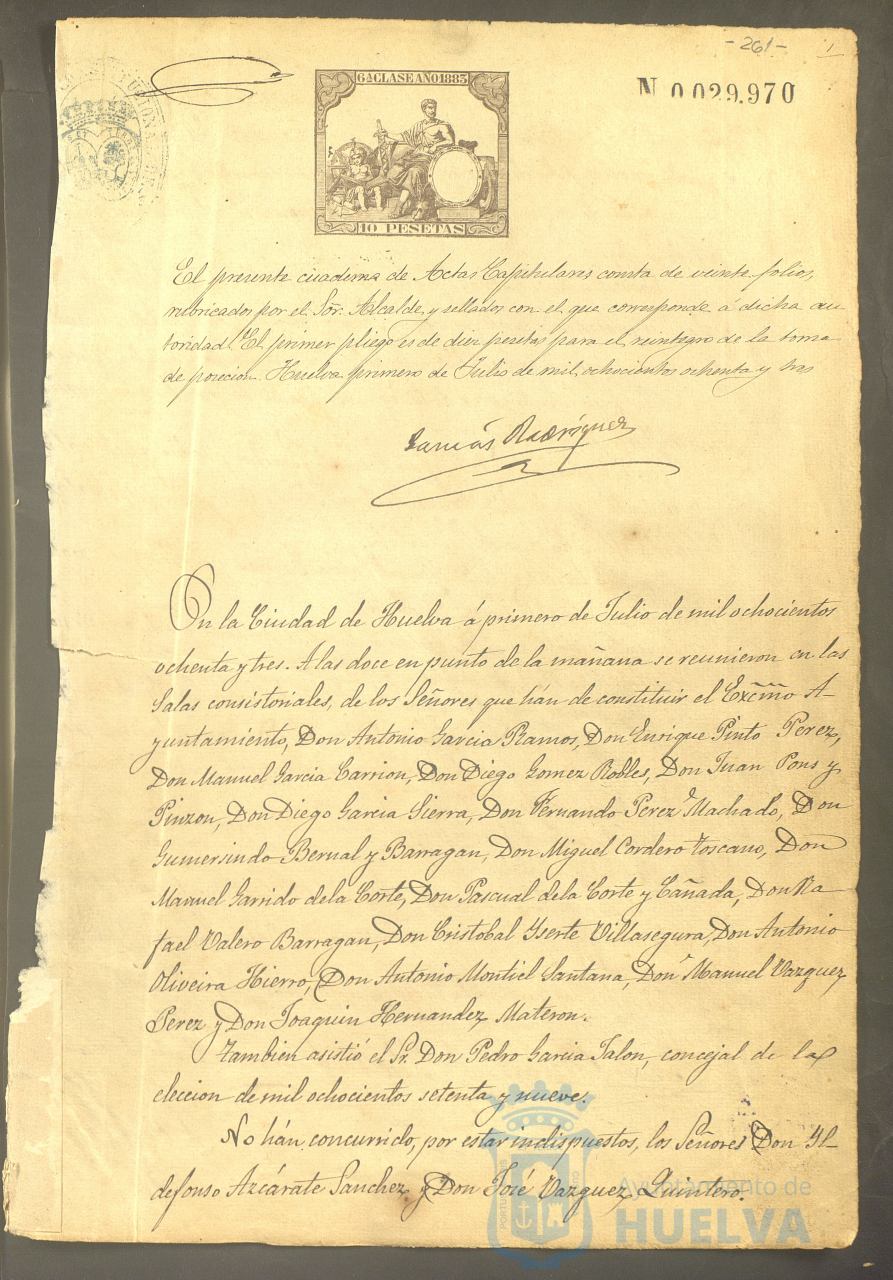 -261- 1
6ª CLASE AÑO 1883
N 0.029.970
10 PESETAS
El presente cuaderno de Actas Capitulares consta de veinte folios,
rubricados por el Sor. Alcalde, y sellados con el que corresponde á dicha au
toridad. El primer pliego es de diez pesetas para el reintegro de la toma
de posecion. Huelva primero de Julio de mil ochocientos ochenta y tres
Rodríguez
En la Ciudad de Huelva á primero de Julio de mil ochocientos
ochenta y tres. A las doce en punto de la mañana se reunieron en las
Salas consistoriales, de los Señores que hán de constituir el Excmo A-
yuntamiento, Don Antonio Garcia Ramos, Don Enrique Pinto Perez,
Don Manuel Garcia Carrion, Don Diego Gomez Robles, Don Juan Pons y
Pinzon, Don Diego Garcia Sierra, Don Fernando Perez Machado, Don
Gumersindo Bernal y Barragan, Don Miguel Cordero Toscano, Don
Manuel Garrido de la Corte, Don Pascual de la Corte y Cañada, Don Ra
fael Valero Barragan, Don Cristobal Yserte Villasegura, Don Antonio
Oliveira Hierro, Don Antonio Montiel Santana, Don Manuel Vazquez
Perez y Don Joaquin Hernandez Materon.
Tambien asistió el Sr. Don Pedro Garcia Jalon, concejal de la
eleccion de mil ochocientos setenta y nueve.
No hán concurrido, por estar indispuestos, los Señores Don Yl-
defonso Azcárate Sanchez y Don José Vazquez Quintero.
Ayuntamiento de
HUELVA